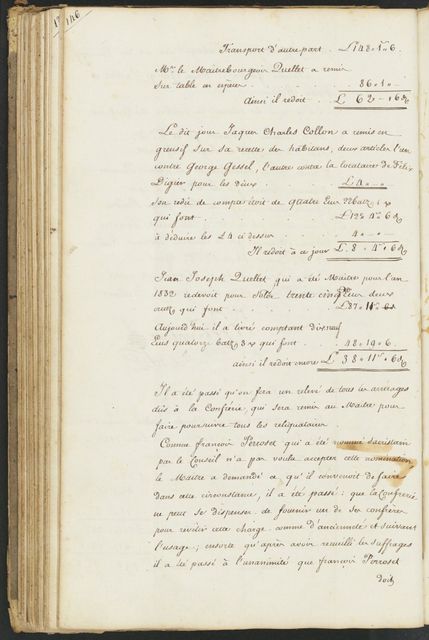 146
Transport d'autre part. £ 148 . 1 . 6.
Mr. le Maitrebourgeois Quellet a remis
sur table en especes . . . 86 . 1 . "
Ainsi il redoit . £ 62 . " . 6
Le dit jour Jaques Charles Collon a remis en
greusif sur sa recette des habitans, deux articles l'un
contre George Gessel, l'autre contre la locataire de Felix
Digier pour les deux . . . £ 4 . " . "
Son redû de compte étoit de quatre Ecus
qui font . . . £ 12 . 4 . 6
à déduire les £4 ci dessus . . 4 . " . "
Il redoit à ce jour £ 8 . 4 . 6
Jean Joseph Quellet qui a été Maitre pour l'an
1832 redevoit pour solde trente cinq Ecus deux
qui font . . . £ 87 . 11 . 6
Aujourd'hui il a livré comptant dix neuf
Ecus quatorze batz qui font . . 48 . 19 . 6 .
ainsi il redoit encore £ 38 . 11 . 6
Il a été passé qu'on fera un relevé de tous les arrérages
dûs à la Confrérie, qui sera remis au Maitre pour
faire poursuivre tous les reliquataires.
Comme françois Perroset qui a été nommé sacristain
par le Conseil n'a pas voulu accepter cette nomination
le Maitre a demandé ce qu'il convenoit de faire
dans cette circonstance, il a été passé : que la Confrerie
ne peut se dispenser de fournir un de ses confrères
pour revêtir cette charge comme d'ancienneté et suivant
l'usage ; ensorte qu'après avoir recueilli les suffrages
il a été passé à l'unanimité que françois Perroset
doit